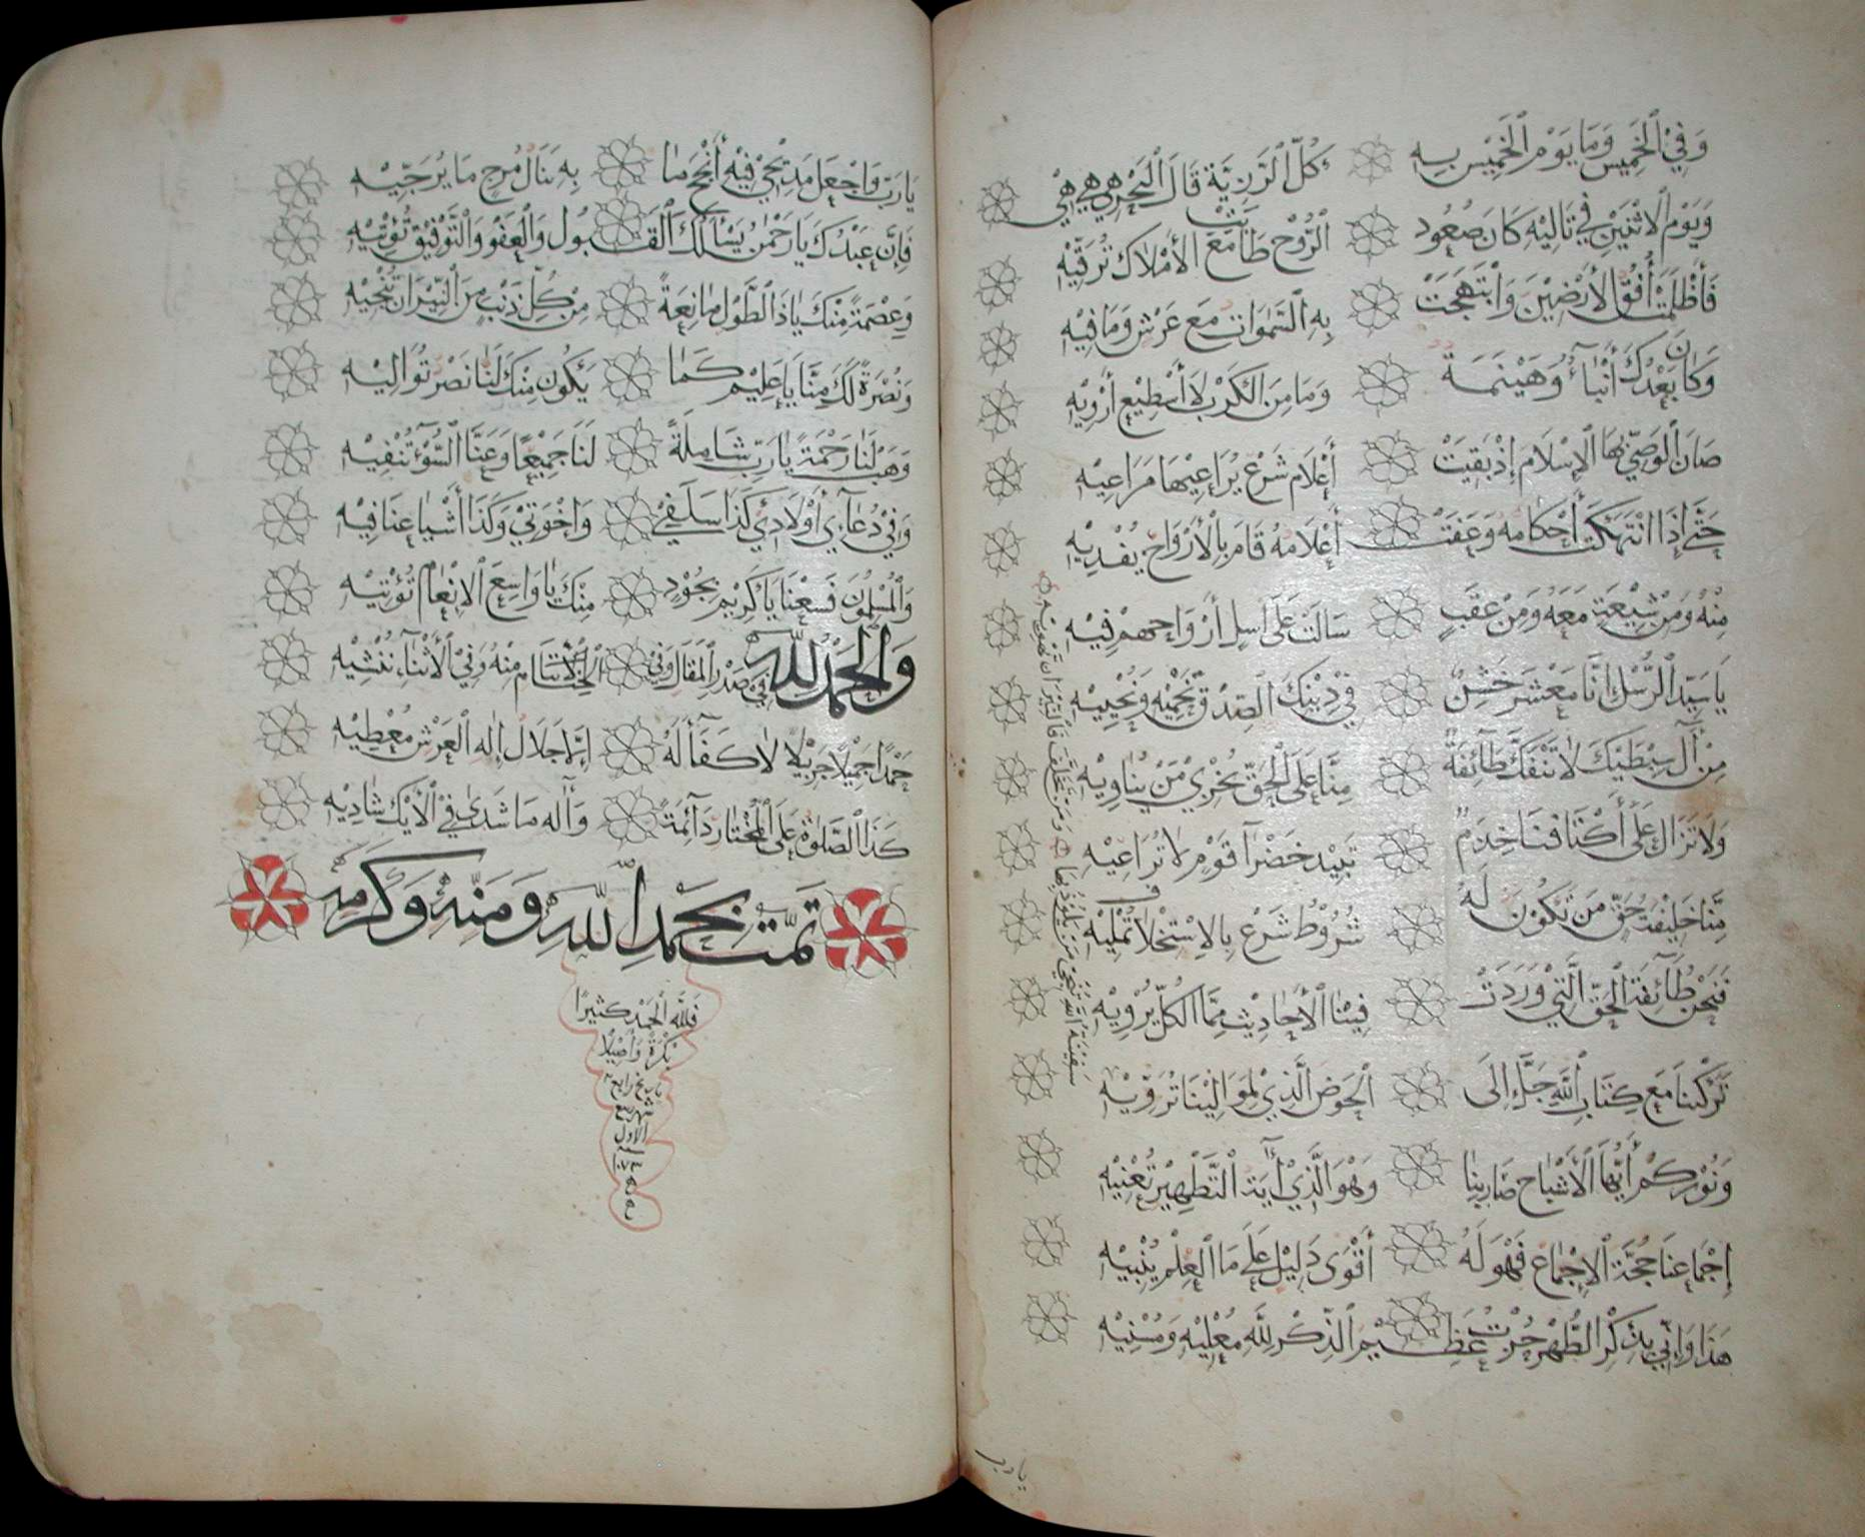 وَفِي الْخَمِيسِ وَمَا يَوْمُ الْخَمِيْسِ بِهِ كُلُّ الرَّزِيَّةِ قَالَ الْبَحْرُ هِيْ هِيَ هِيْ
وَيَوْمَ الِاثْنَيْنِ فِي تَالِيْهِ كَانَ صُعُودُ الرُّوْحِ طٰهَ مَعَ الأَمْلَاكِ تُرَقِّيْهِ
فَأَظْلَمَتْ أُفُقُ الأَرْضِيْنَ وَابْتَهَجَتْ بِهِ السَّمٰوَاتُ مَعَ عَرْشٍ وَمَا فِيْهِ
وَكَانَ بَعْدَكَ أَنْبَاءٌ وَهَيْنَمَةٌ وَمَا مِنَ الْكَرْبِ لَا أَسْطِيْعُ أَرْوِيْهِ
صَانَ الْوَصِيُّ بِهَا الْإِسْلَامَ إِذْ بَقِيَتْ أَعْلَامُ شَرْعٍ يُرَاعِيْهَا مَرَاعِيْهِ
حَتَّى إِذَا انْتُهِكَتْ أَحْكَامُهُ وَعَفَتْ أَعْلَامُهُ قَامَ بِالْأَرْوَاحِ يَفْدِيْهِ
مِنْهُ وَمِنْ شِيْعَةٍ مَعَهُ وَمِنْ عَقِبٍ سَالَتْ عَلَى أَسَلٍ أَرْوَاحُهُمْ فِيْهِ
يَا سَيِّدَ الرُّسْلِ إِنَّا مَعْشَرٌ خَشُنٌ فِي دِيْنِكَ الصِّدْقِ نَحْمِيْهِ وَنُحْيِيْهِ
مِنْ آلِ سِبْطَيْكَ لَا تَنْفَكُّ طَآئِفَةٌ مِنَّا عَلَى الْحَقِّ تُخْزِيْ مَنْ يُنَاوِيْهِ
وَلَا تَزَالُ عَلَى أَكْتَافِنَا خِدَمٌ تَبِيْدُ خَضْرَآءُ قَوْمٍ لَا تُرَاعِيْهِ
مِنَّا خَلِيْفَةُ حَقٍّ مَنْ تَكُوْنُ لَهُ شُرُوْطُ شَرْعٍ بِالِاسْتِخْلَافِ تُمْلِيْهِ
فَنَحْنُ طَآئِفَةُ الْحَقِّ الَّتِيْ وَرَدَتْ فِيْنَا الْأَحَادِيْثُ مِمَّا الْكُلُّ يَرْوِيْهِ
تَرَكْتَنَا مَعَ كِتَابِ اللَّهِ جَلَّ إِلَى الْحَوْضِ الَّذِيْ لِمَوَالِيْنَا تُرَوِّيْهِ
وَنُوْرُكُمْ أَيُّهَا الْأَشْبَاحُ صَارَ بِنَا وَهْوَ الَّذِيْ آيَةُ التَّطْهِيْرِ تَعْنِيْهِ
إِجْمَاعُنَا حُجَّةُ الْإِجْمَاعِ فَهْوَ لَهُ أَقْوَى دَلِيْلٍ عَلَى مَا الْعِلْمُ يُنْبِيْهِ
هَذَا وَإِنِّي بِذِكْرِ الطُّهْرِ حُزْتُ عَظِيْمَ الذِّكْرِ لِلَّهِ مُعْلِيْهِ وَمُسْنِيْهِ
سَفِيْنَةُ اللَّهِ تُنْجِيْ مَنْ يَلُوْذُ بِهَا وَمَنْ تَخَلَّفَ فَالنِّيْرَانُ تَهْوِيْهِ
يارب
يَا رَبِّ وَاجْعَلْ مَدِيْحِيْ فِيْهِ أَنْجَحَ مَا بِهِ يَنَالُ مُرَجٍّ مَا يُرَجِّيْهِ
فَإِنَّ عَبْدَكَ يَا رَحْمٰنُ يَسْأَلُكَ الْقَبُولَ وَالْعَفْوَ وَالتَّوْفِيْقَ تُؤْتِيْهِ
وَعِصْمَةً مِنْكَ يَا ذَا الطَّوْلِ مَانِعَةً مِنْ كُلِّ ذَنْبٍ مِنَ النِّيْرَانِ تُنْجِيْهِ
وَنُصْرَةً لَكَ مِنَّا يَا عَلِيْمُ كَمَا يَكُونُ مِنْكَ لَنَا نَصْرٌ تُوَالِيْهِ
وَهَبْ لَنَا رَحْمَةً يَا رَبِّ شَامِلَةً لَنَا جَمِيْعًا وَعَنَّا السُّوْءَ تَنْفِيْهِ
وَفِيْ دُعَآءِيْ أَوْلَادِيْ كَذَا سَلَفِيْ وَاخْوَتِيْ وَكَذَا أَشْيَاعُنَا فِيْهِ
وَالْمُسْلِمُوْنَ فَسَعْنَا يَا كَرِيْمُ بِجُوْدٍ مِنْكَ يَا وَاسِعَ الْاِنْعَامِ تُؤْتِيْهِ
وَالْحَمْدُ لِلّٰهِ فِيْ صَدْرِ الْمَقَالِ وَفِيْ الْخِتَامِ مِنْهُ وَفِيْ الْأَثْنَآءِ نُنْشِيْهِ
حَمْدًا جَمِيْلًا جَزِيْلًا لَا كِفَاءَ لَهُ إِلَّا جَلَالُ إِلٰهِ الْعَرْشِ مُعْطِيْهِ
كَذَا الصَّلَوٰةُ عَلَى الْمُخْتَارِ دَآئِمَةٌ وَآلِهِ مَا شَدَى فِي الْأَيْكِ شَادِيْهِ
تَمَّتْ بِحَمْدِ اللّٰهِ وَمَنِّهِ وَكَرَمِهِ
فَلِلَّهِ الْحَمْدُ كَثِيْرًا
بُكْرَةً وَأَصِيْلًا
بتاريخ رابع
شهر ربيع
الاول